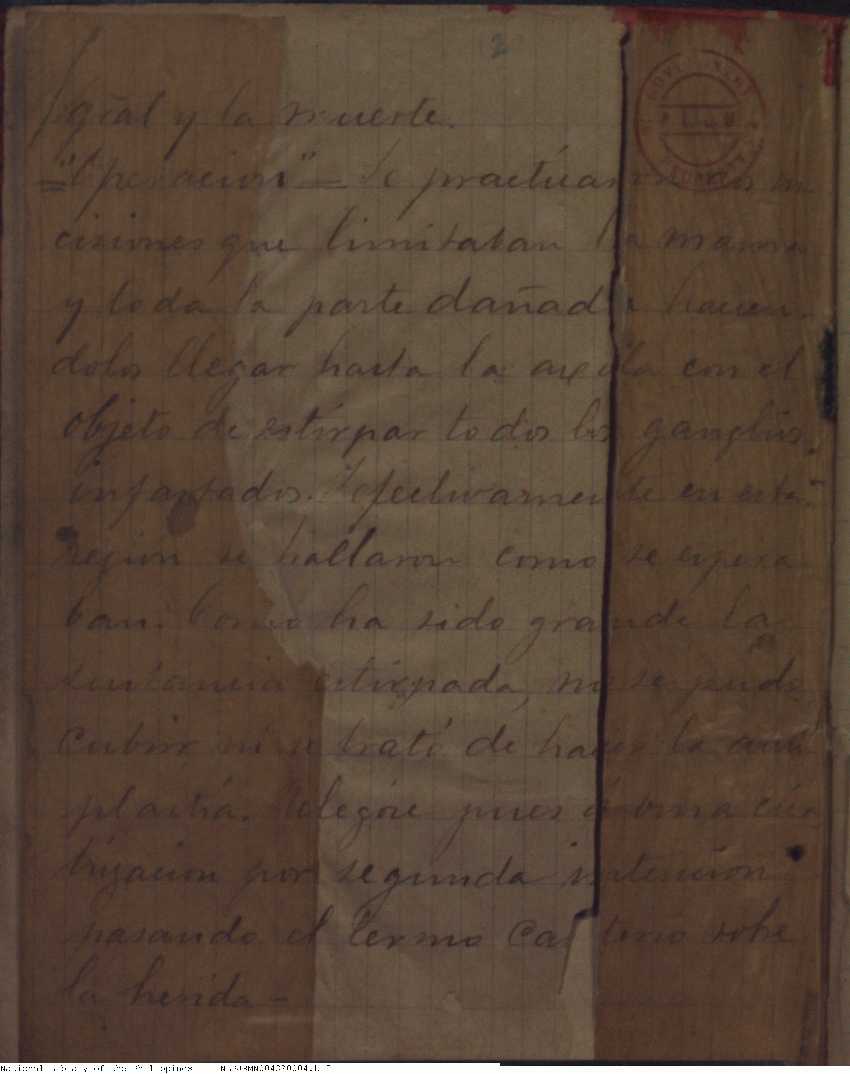 2
gral y la muerte.
="Operacion"= Se practicaron dos in
cisiones que limitaban la mama
y toda la parte dañada hacien-
dolos llegar hasta la axila con el
objeto de estirpar todos los ganglios
infartados. Efectivamente en esta
region se hallaron como se espera
ban. Como ha sido grande la
sustancia estirpada, no se pudo
cubrir ni se trató de hacer la auto
plastia. pues á una cica
trizacion por segunda intencion
pasando el termo cauterio sobre
la herida-
National Library of the Philippines